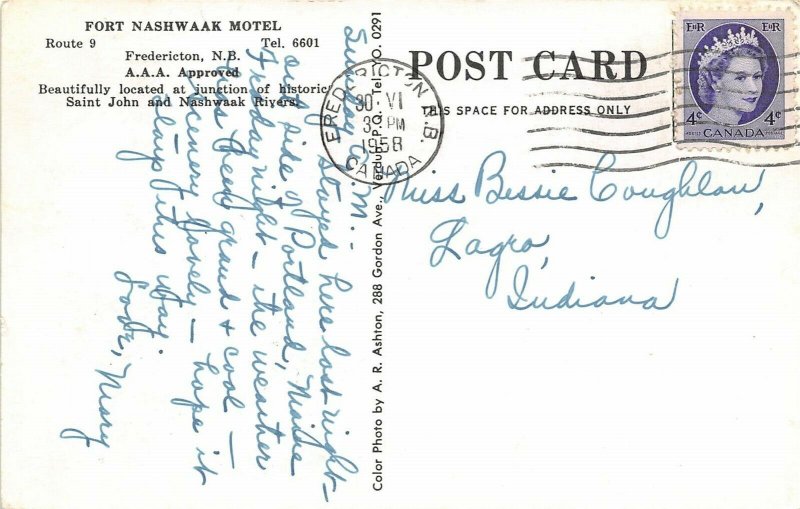 FORT NASHWAAK MOTEL
Route 9 Tel. 6601
Fredericton, N.B.
A.A.A. Approved
Beautifully located at junction of historic
Saint John and Nashwaak Rivers.
Sunday A.M. –
Stayed here last night –
out side of Portland, Maine
Friday night – the weather
has been grand & cool –
scenery lovely – hope it
stays this way.
Love, Mary
Color Photo by A. R. Ashton, 288 Gordon Ave., Verdun, P.Q. Tel. YO. 0291
POST CARD
THIS SPACE FOR ADDRESS ONLY
FREDERICTON, N.B.
30 VI
3 PM
1958
CANADA
E II R E II R
4¢ 4¢
CANADA
POSTES POSTAGE
Miss Bessie Coughlan,
Lagro,
Indiana